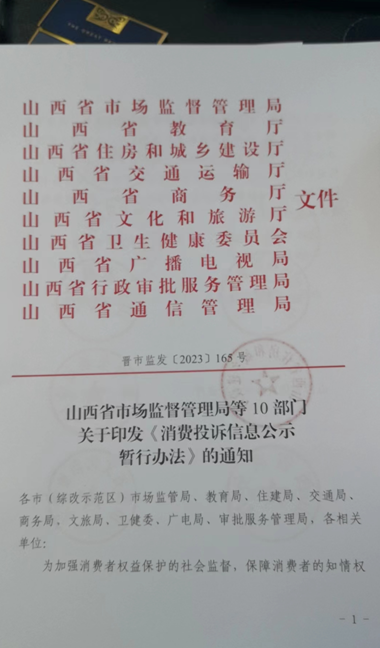 山西省市场监督管理局
山西省教育厅
山西省住房和城乡建设厅
山西省交通运输厅
山西省商务厅
文件
山西省文化和旅游厅
山西省卫生健康委员会
山西省广播电视局
山西省行政审批服务管理局
山西省通信管理局
晋市监发〔2023〕165号
山西省市场监督管理局等10部门
关于印发《消费投诉信息公示
暂行办法》的通知
各市（综改示范区）市场监管局、教育局、住建局、交通局、
商务局、文旅局、卫健委、广电局、审批服务管理局，各相关
单位：
为加强消费者权益保护的社会监督，保障消费者的知情权
- 1 -